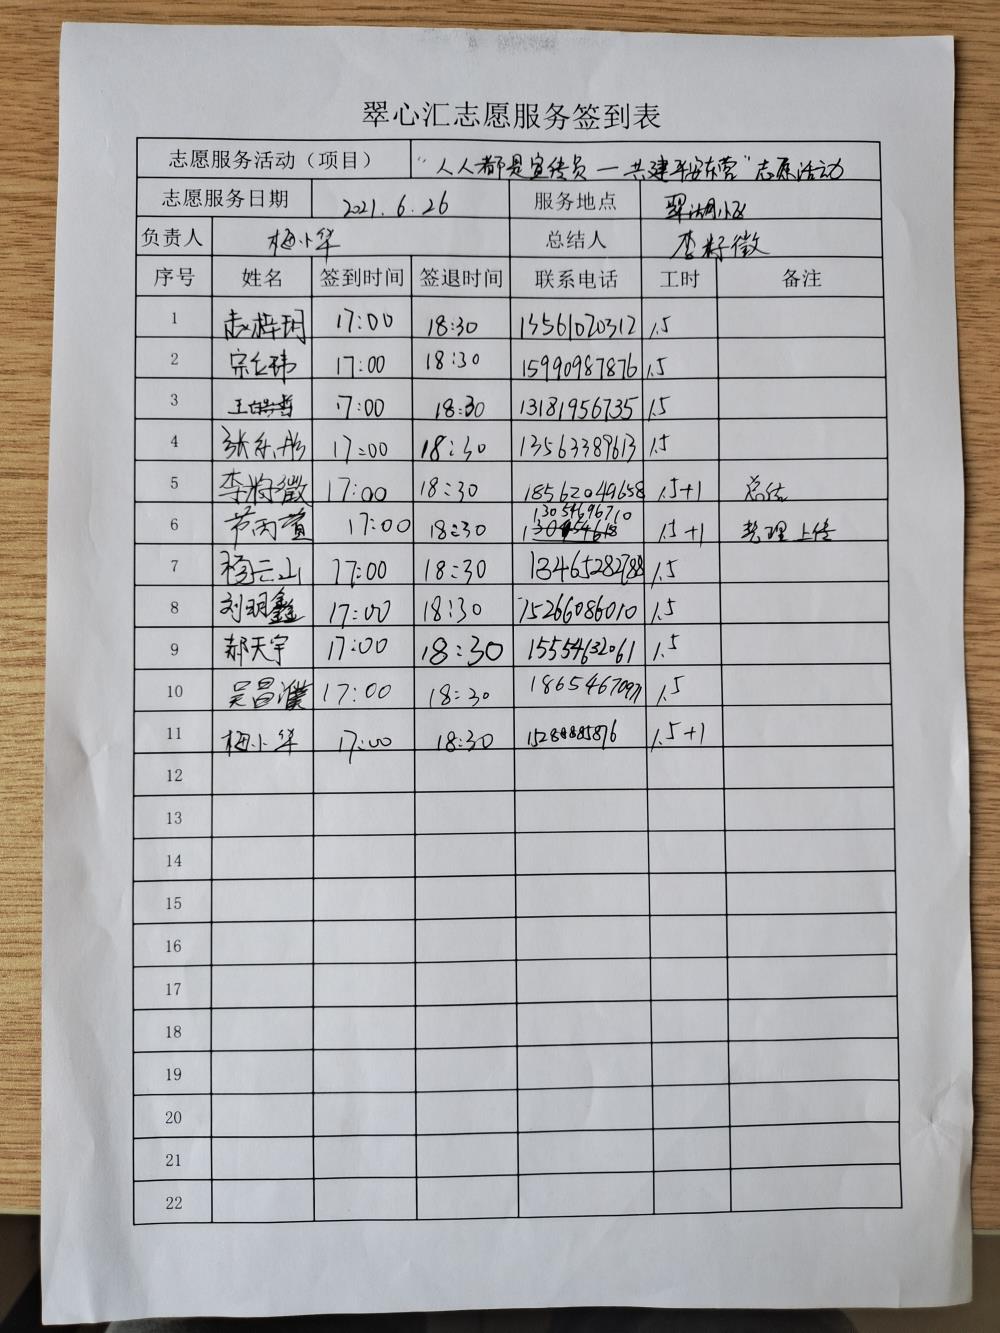 翠心汇志愿服务签到表
志愿服务活动（项目） “人人都是宣传员—共建平安东营”志愿活动
志愿服务日期 2021.6.26 服务地点 翠湖小区
负责人 梅小华 总结人 李籽徵
序号 姓名 签到时间 签退时间 联系电话 工时 备注
1 赵梓玥 17:00 18:30 13561020312 1.5
2 17:00 18:30 15990987876 1.5
3 17:00 18:30 13181956735 1.5
4 张乐彤 17:00 18:30 13563389613 1.5
5 李籽徵 17:00 18:30 18562049658 1.5+1 总结
6 17:00 18:30 13054696710 1.5+1 整理上传
7 杨云山 17:00 18:30 13465282788 1.5
8 刘明鑫 17:00 18:30 15266086010 1.5
9 郝天宇 17:00 18:30 15554632061 1.5
10 吴昌濮 17:00 18:30 1.5
11 梅小华 17:00 18:30 1.5+1
12
13
14
15
16
17
18
19
20
21
22